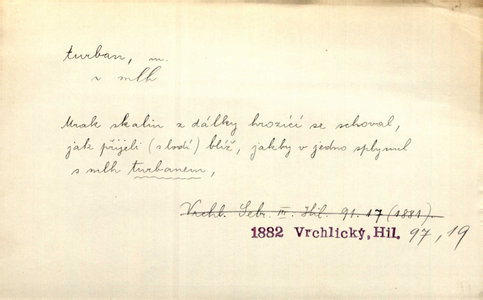 turban, m.
z mlh
Mrak skalin z dálky hrozící se schoval,
jak přijeli (s lodí) blíž, jakby v jedno splynul
s mlh turbanem,
Vrchl. Sebr. III. Hil. 91. 17 (1881).
1882 Vrchlický, Hil. 97, 19